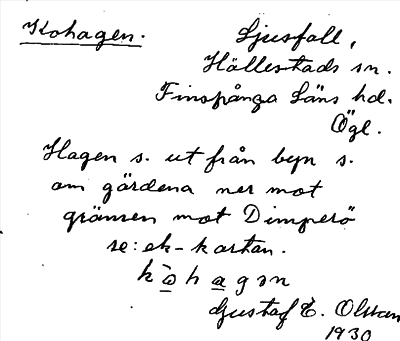 Kohagen.
Ljusfall,
Hällestads sn.
Finspånga Läns hd.
Ögl.
Hagen s. ut från byn s.
om gärdena ner mot
gränsen mot Dimperö
se: ek-kartan.
kò̱ha̱gən
Gustaf E. Olsson
1930